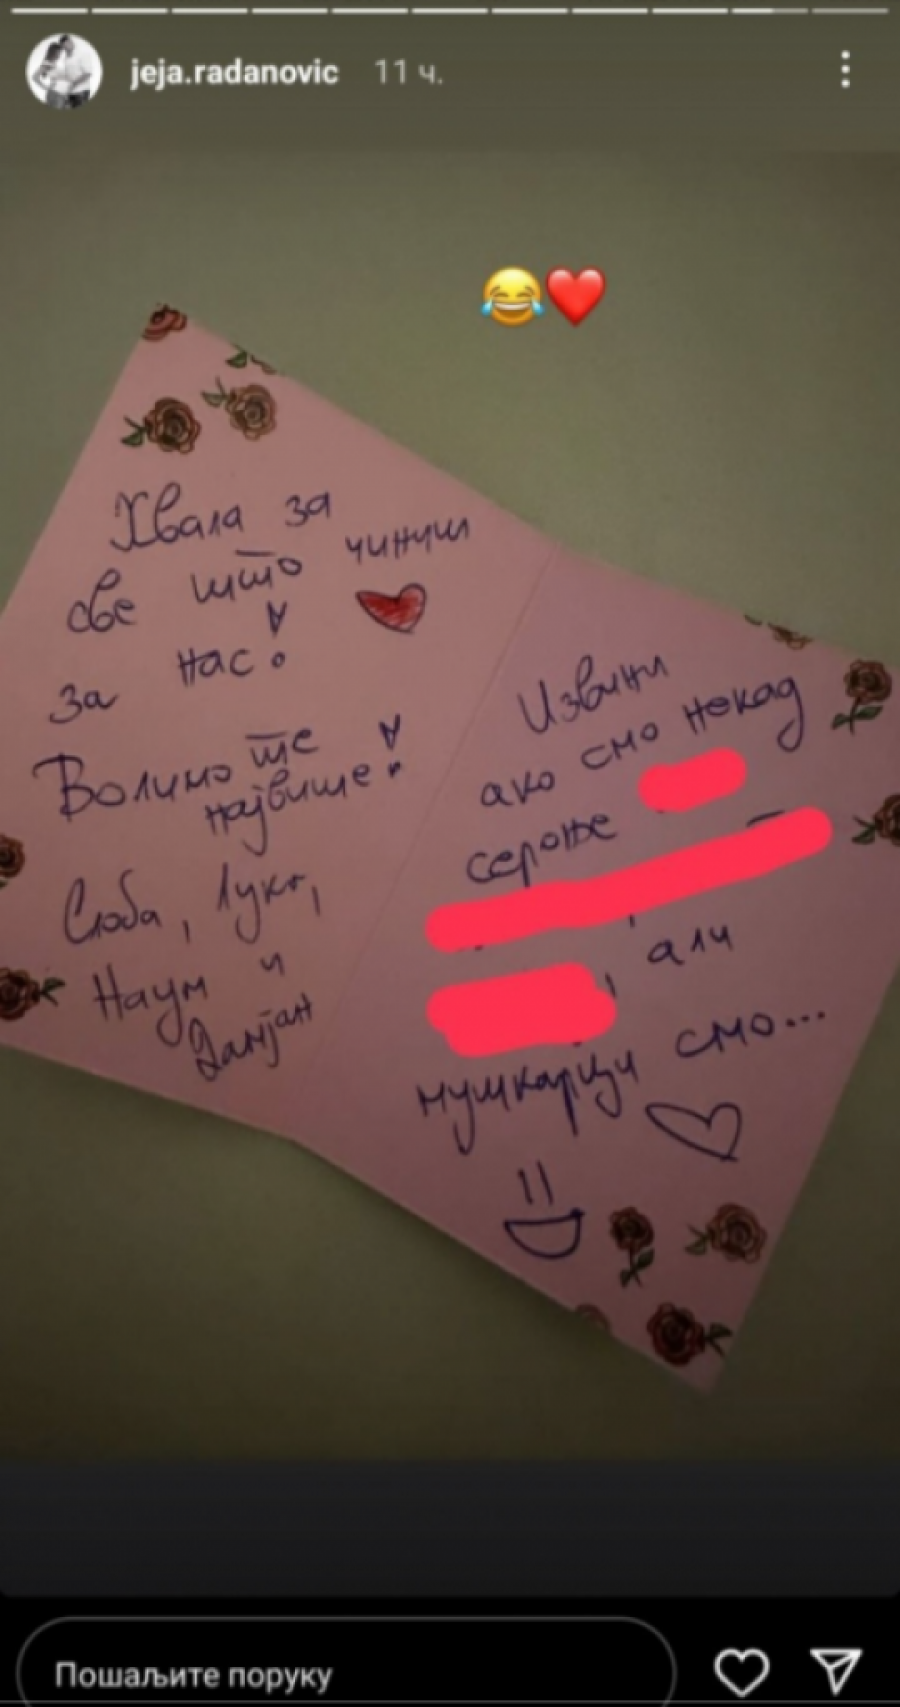 jeja.radanovic 11 ч.
😂❤️
Хвала за
све што чиниш
за нас!
Волимо те
највише!
Слоба, Лука,
Наум и
Дамјан
Извини
ако смо некад
сероње
, али
мушкарци смо...
Пошаљите поруку